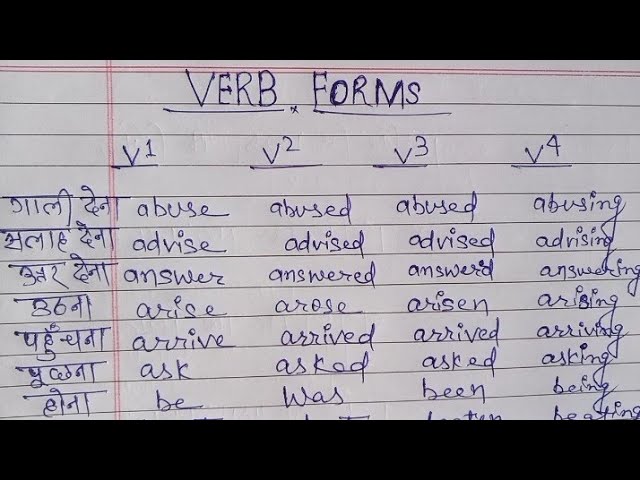 VERB FORMS
V1 V2 V3 V4
गाली देना abuse abused abused abusing
सलाह देना advise advised advised advising
उत्तर देना answer answered answerd answering
उठना arise arose arisen arising
पहुँचना arrive arrived arrived arriving
पूछना ask asked asked asking
होना be was been being
beating